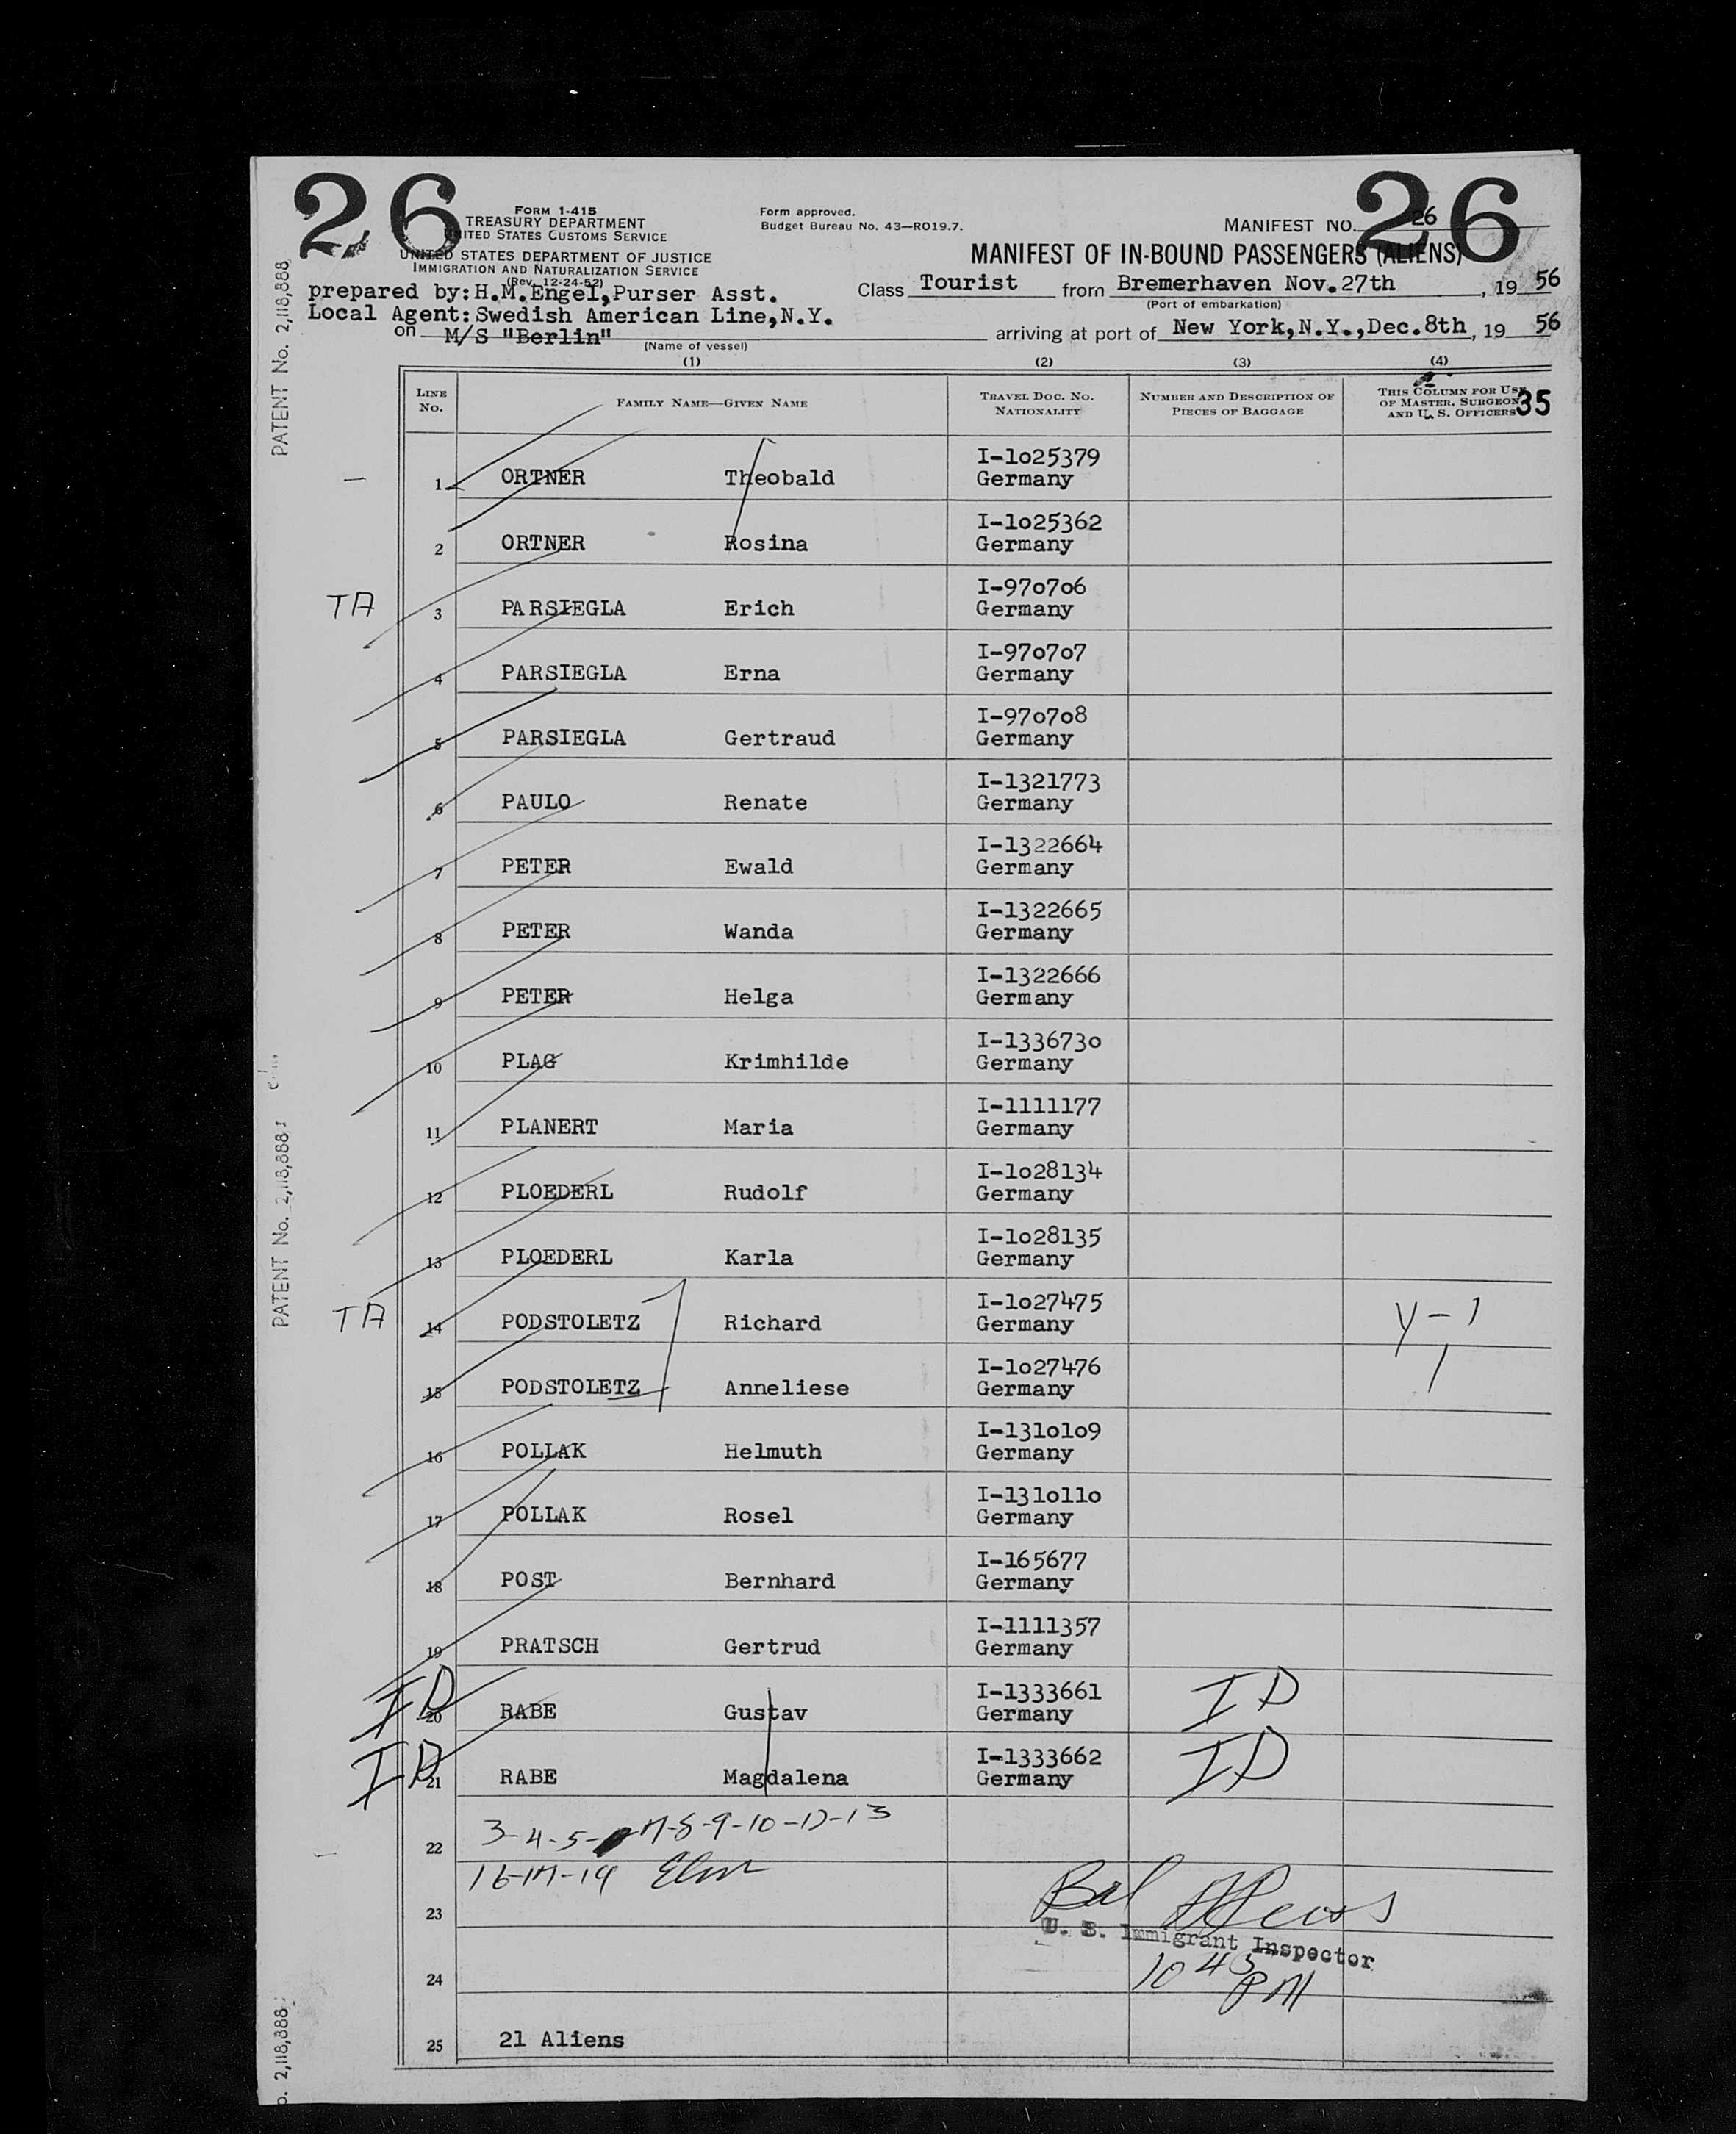 26
26
FORM I-415
TREASURY DEPARTMENT
UNITED STATES CUSTOMS SERVICE
UNITED STATES DEPARTMENT OF JUSTICE
IMMIGRATION AND NATURALIZATION SERVICE
(Rev. 12-24-52)
Form approved.
Budget Bureau No. 43—RO19.7.
MANIFEST NO. 26
MANIFEST OF IN-BOUND PASSENGERS (ALIENS)
prepared by:H.M.Engel,Purser Asst.
Local Agent:Swedish American Line,N.Y.
Class Tourist from Bremerhaven Nov.27th, 19 56
(Port of embarkation)
on M/S "Berlin" arriving at port of New York,N.Y.,Dec.8th, 19 56
(Name of vessel)
(1) (2) (3) (4)
LINE No. FAMILY NAME—GIVEN NAME TRAVEL DOC. NO. NATIONALITY NUMBER AND DESCRIPTION OF PIECES OF BAGGAGE THIS COLUMN FOR USE OF MASTER, SURGEON, AND U. S. OFFICERS 35
1 ORTNER Theobald I-1o25379 Germany
2 ORTNER Rosina I-1o25362 Germany
TA 3 PARSIEGLA Erich I-97o7o6 Germany
4 PARSIEGLA Erna I-97o7o7 Germany
5 PARSIEGLA Gertraud I-97o7o8 Germany
6 PAULO Renate I-1321773 Germany
7 PETER Ewald I-1322664 Germany
8 PETER Wanda I-1322665 Germany
9 PETER Helga I-1322666 Germany
10 PLAG Krimhilde I-133673o Germany
11 PLANERT Maria I-1111177 Germany
12 PLOEDERL Rudolf I-1o28134 Germany
13 PLOEDERL Karla I-1o28135 Germany
TA 14 PODSTOLETZ Richard I-1o27475 Germany Y-1
15 PODSTOLETZ Anneliese I-1o27476 Germany 1
16 POLLAK Helmuth I-131o1o9 Germany
17 POLLAK Rosel I-131o11o Germany
18 POST Bernhard I-165677 Germany
19 PRATSCH Gertrud I-1111357 Germany
ID 20 RABE Gustav I-1333661 Germany ID
ID 21 RABE Magdalena I-1333662 Germany ID
22 3-4-5- 7-8-9-10-12-13
16-17-19
23
U. S. Immigrant Inspector
24 10 45 PM
25 21 Aliens
PATENT No. 2,118,888
PATENT No. 2,118,888
o. 2,118,888